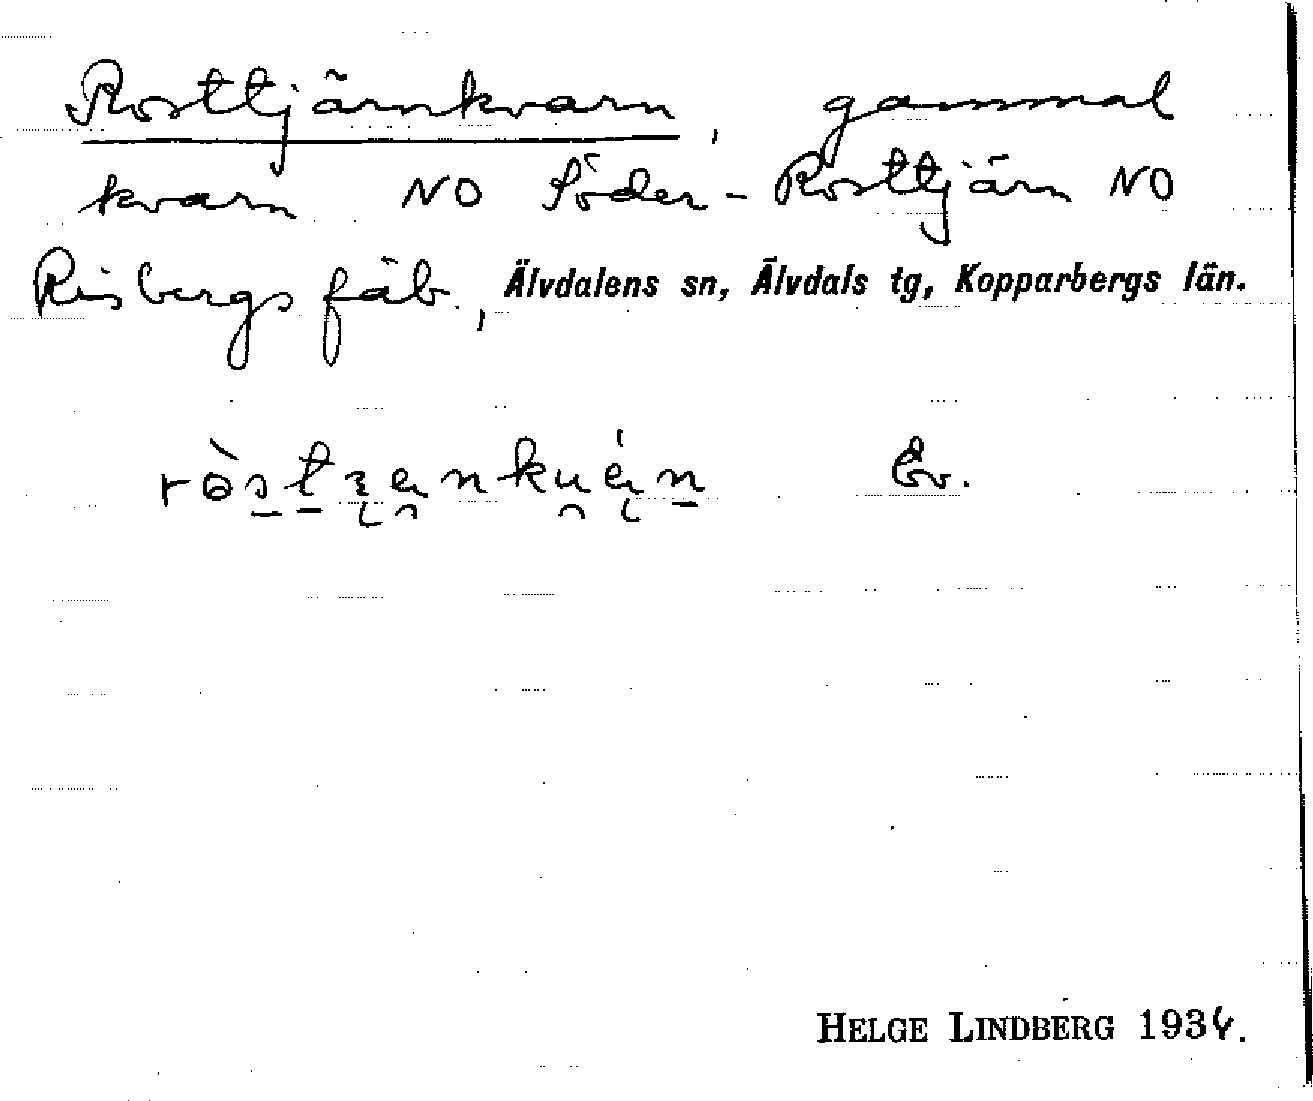 Rosttjärnkvarn, gammal
kvarn NO Söder-Rosttjärn NO
Risbergs fäb., Älvdalens sn, Älvdals tg, Kopparbergs län.
Ev.
HELGE LINDBERG 1934.